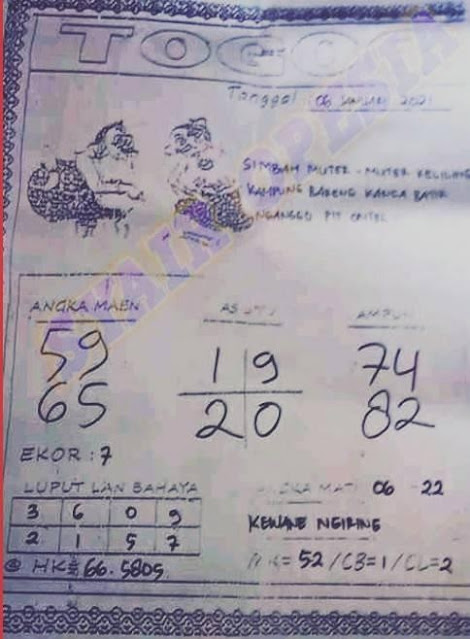 TOGOG
Tanggal 06 JANUARI 2021
SIMBAH MUTER - MUTER KELILING
KAMPUNG BARENG KANCA BATIR
NGANGGO PIT ONTEL
ANGKA MAEN
59
65
19
20
74
82
EKOR : 7
LUPUT LAN BAHAYA
3 6 0 9
2 1 5 7
ANGKA MATI 06 - 22
KEWANE NGIRING
= 52 / CB=1 / CL=2
@ HK= 66.5805